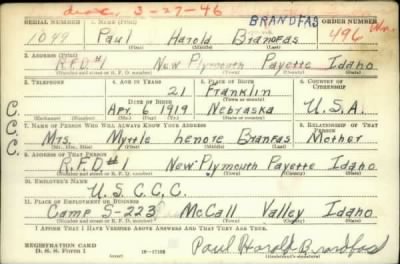 disc. 3-27-46 BRANDFAS
SERIAL NUMBER 1. NAME (Print) ORDER NUMBER
1099 Paul Harold Brandfas 496
(First) (Middle) (Last)
2. ADDRESS (Print)
R.F.D.#1 New Plymouth Payette Idaho
(Number and street or R. F. D. number) (Town) (County) (State)
3. TELEPHONE 4. AGE IN YEARS 5. PLACE OF BIRTH 6. COUNTRY OF CITIZENSHIP
21 Franklin
DATE OF BIRTH (Town or county)
Apr. 6 1919 Nebraska U.S.A.
(Exchange) (Number) (Mo.) (Day) (Yr.) (State or country)
7. NAME OF PERSON WHO WILL ALWAYS KNOW YOUR ADDRESS 8. RELATIONSHIP OF THAT PERSON
Mrs. Myrtle Lenore Branfas Mother
(Mr., Mrs., Miss) (First) (Middle) (Last)
9. ADDRESS OF THAT PERSON
R.F.D.#1 New Plymouth Payette Idaho
(Number and street or R. F. D. number) (Town) (County) (State)
10. EMPLOYER'S NAME
U.S.C.C.C.
11. PLACE OF EMPLOYMENT OR BUSINESS
Camp S-223 McCall Valley Idaho
(Number and street or R. F. D. number) (Town) (County) (State)
I AFFIRM THAT I HAVE VERIFIED ABOVE ANSWERS AND THAT THEY ARE TRUE.
REGISTRATION CARD
D. S. S. Form 1 16-17105 Paul Harold Brandfas
(Registrant's signature)
C.C.C.